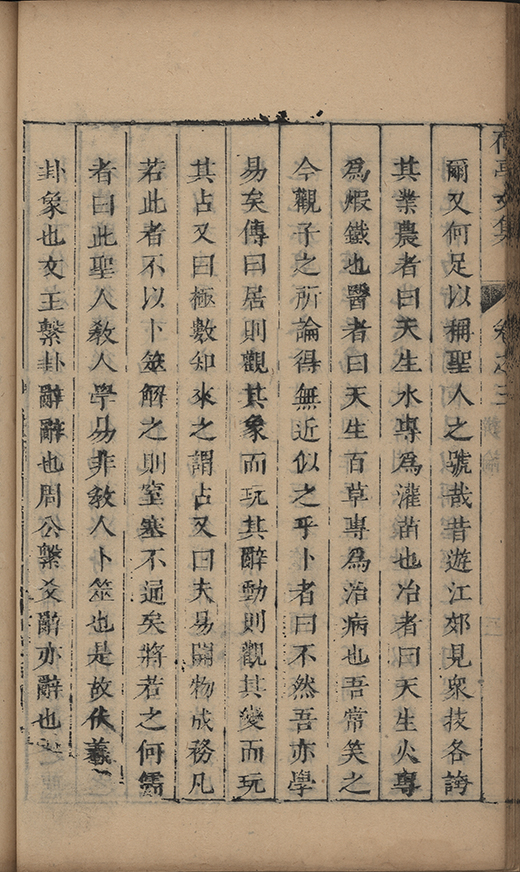 文集 卷之三
爾又何足以稱聖人之號哉昔遊江郊見衆技各誇
其業農者曰天生水專爲灌苗也冶者曰天生火專
爲煆鐵也醫者曰天生百草專爲治病也吾常笑之
今觀子之所論得無近似之乎卜者曰不然吾亦學
易矣傳曰居則觀其象而玩其辭動則觀其變而玩
其占又曰極數知來之謂占又曰夫易開物成務凡
若此者不以卜筮解之則窒塞不通矣將若之何儒
者曰此聖人教人學易非教人卜筮也是故伏羲
卦象也文王繫卦辭辭也周公繫爻辭亦辭也